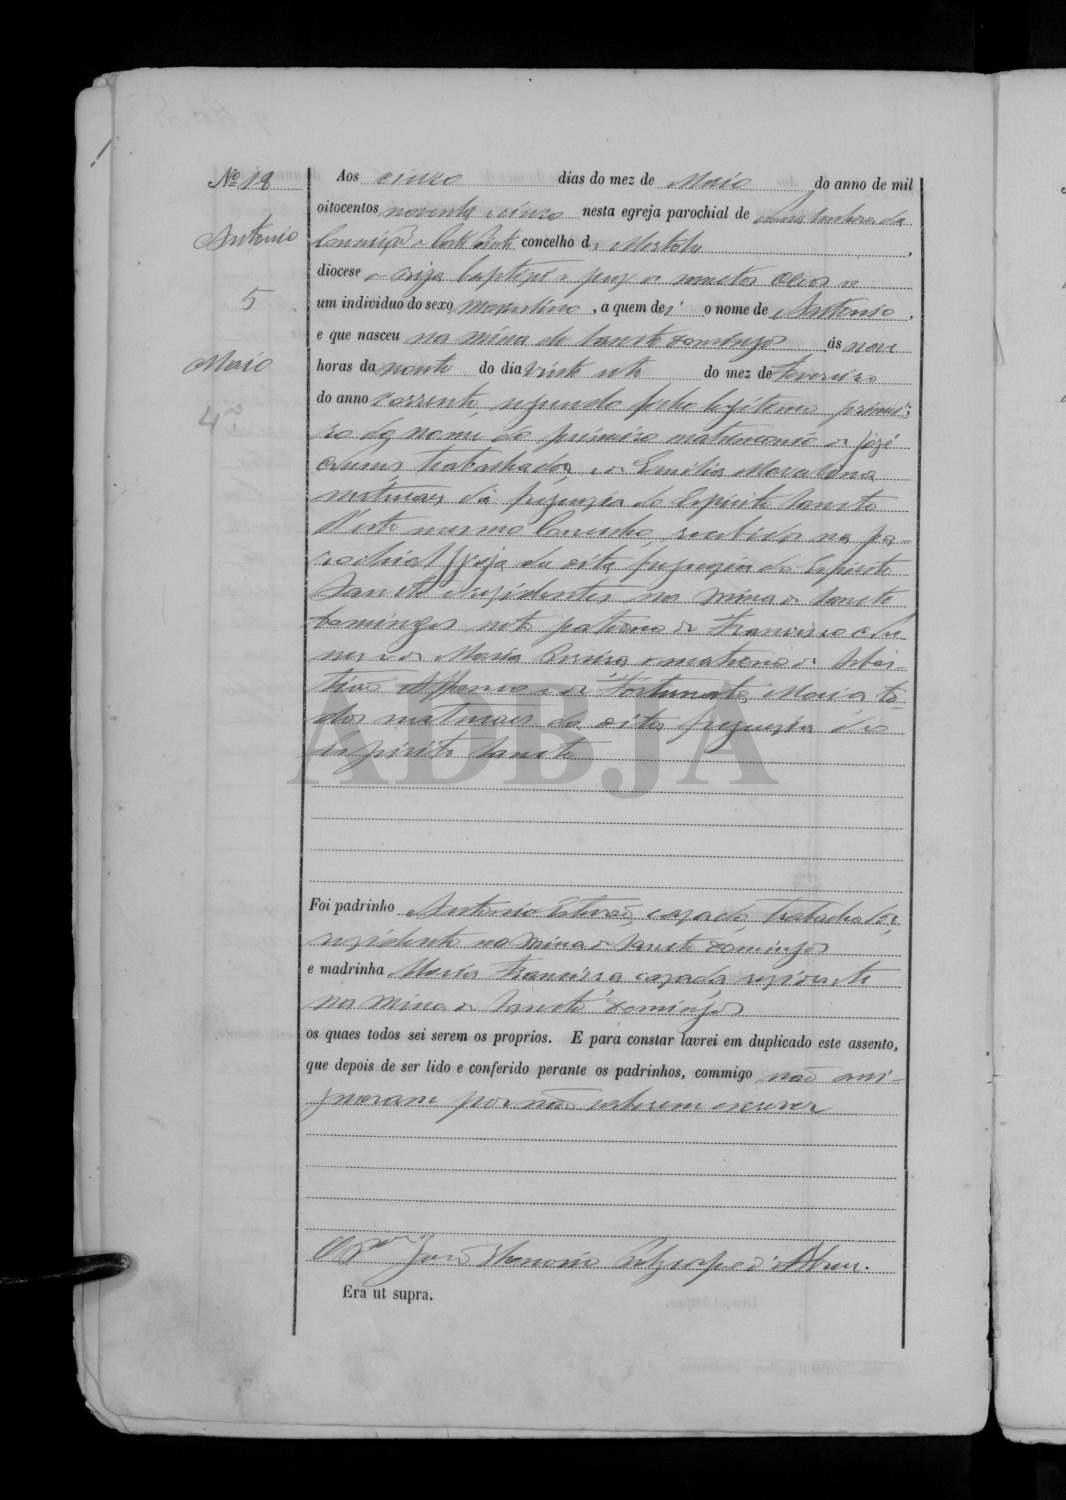 Nº 18
Antonio
5
Maio
4º
Aos cinco dias do mez de Maio do anno de mil
oitocentos noventa e cinco nesta egreja parochial de Nossa Senhora da
Conceição de Corte Pinto concelho de Mertola,
diocese de Beija baptizei e puz os sanctos oleos a
um individuo do sexo masculino, a quem dei o nome de Antonio,
e que nasceu na mina de Sancto Domingos ás nove
horas da noute do dia vinte sete do mez de Fevereiro
do anno corrente segundo filho legitimo primei-
ro do nome do primeiro matrimonio de José
Nunes, trabalhador, e de Emilia
naturaes da freguezia do Espirito Sancto
d'este mesmo Concelho, recebidos na pa-
rochial Igreja da dita freguezia do Espirito
Sancto residentes na mina de Sancto
Domingos neto paterno de Francisco Nu-
nes e de Maria Pereira e materno de Sebas-
tião Affonso e de Fortunata Maria to-
dos naturaes da dita freguezia do
Espirito Sancto
ADBJA
Foi padrinho Antonio Estevão, cazado, trabalhador,
rezidente na mina de Sancto Domingos
e madrinha Maria Francisca cazada, rezidente
na mina de Sancto Domingos
os quaes todos sei serem os proprios. E para constar lavrei em duplicado este assento,
que depois de ser lido e conferido perante os padrinhos, commigo não assi-
gnaram por não saberem escrever
O José Abreu.
Era ut supra.